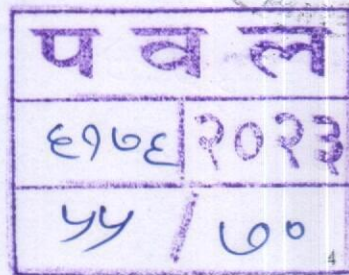 प व ल
६१७६ २०२३
५५ / ७०
4